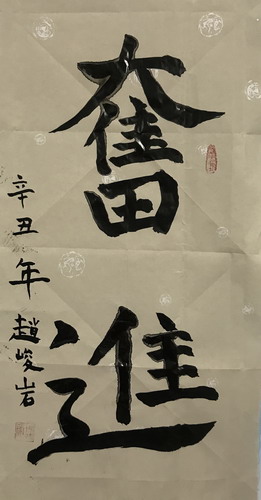 奮進
辛丑年趙峻岩